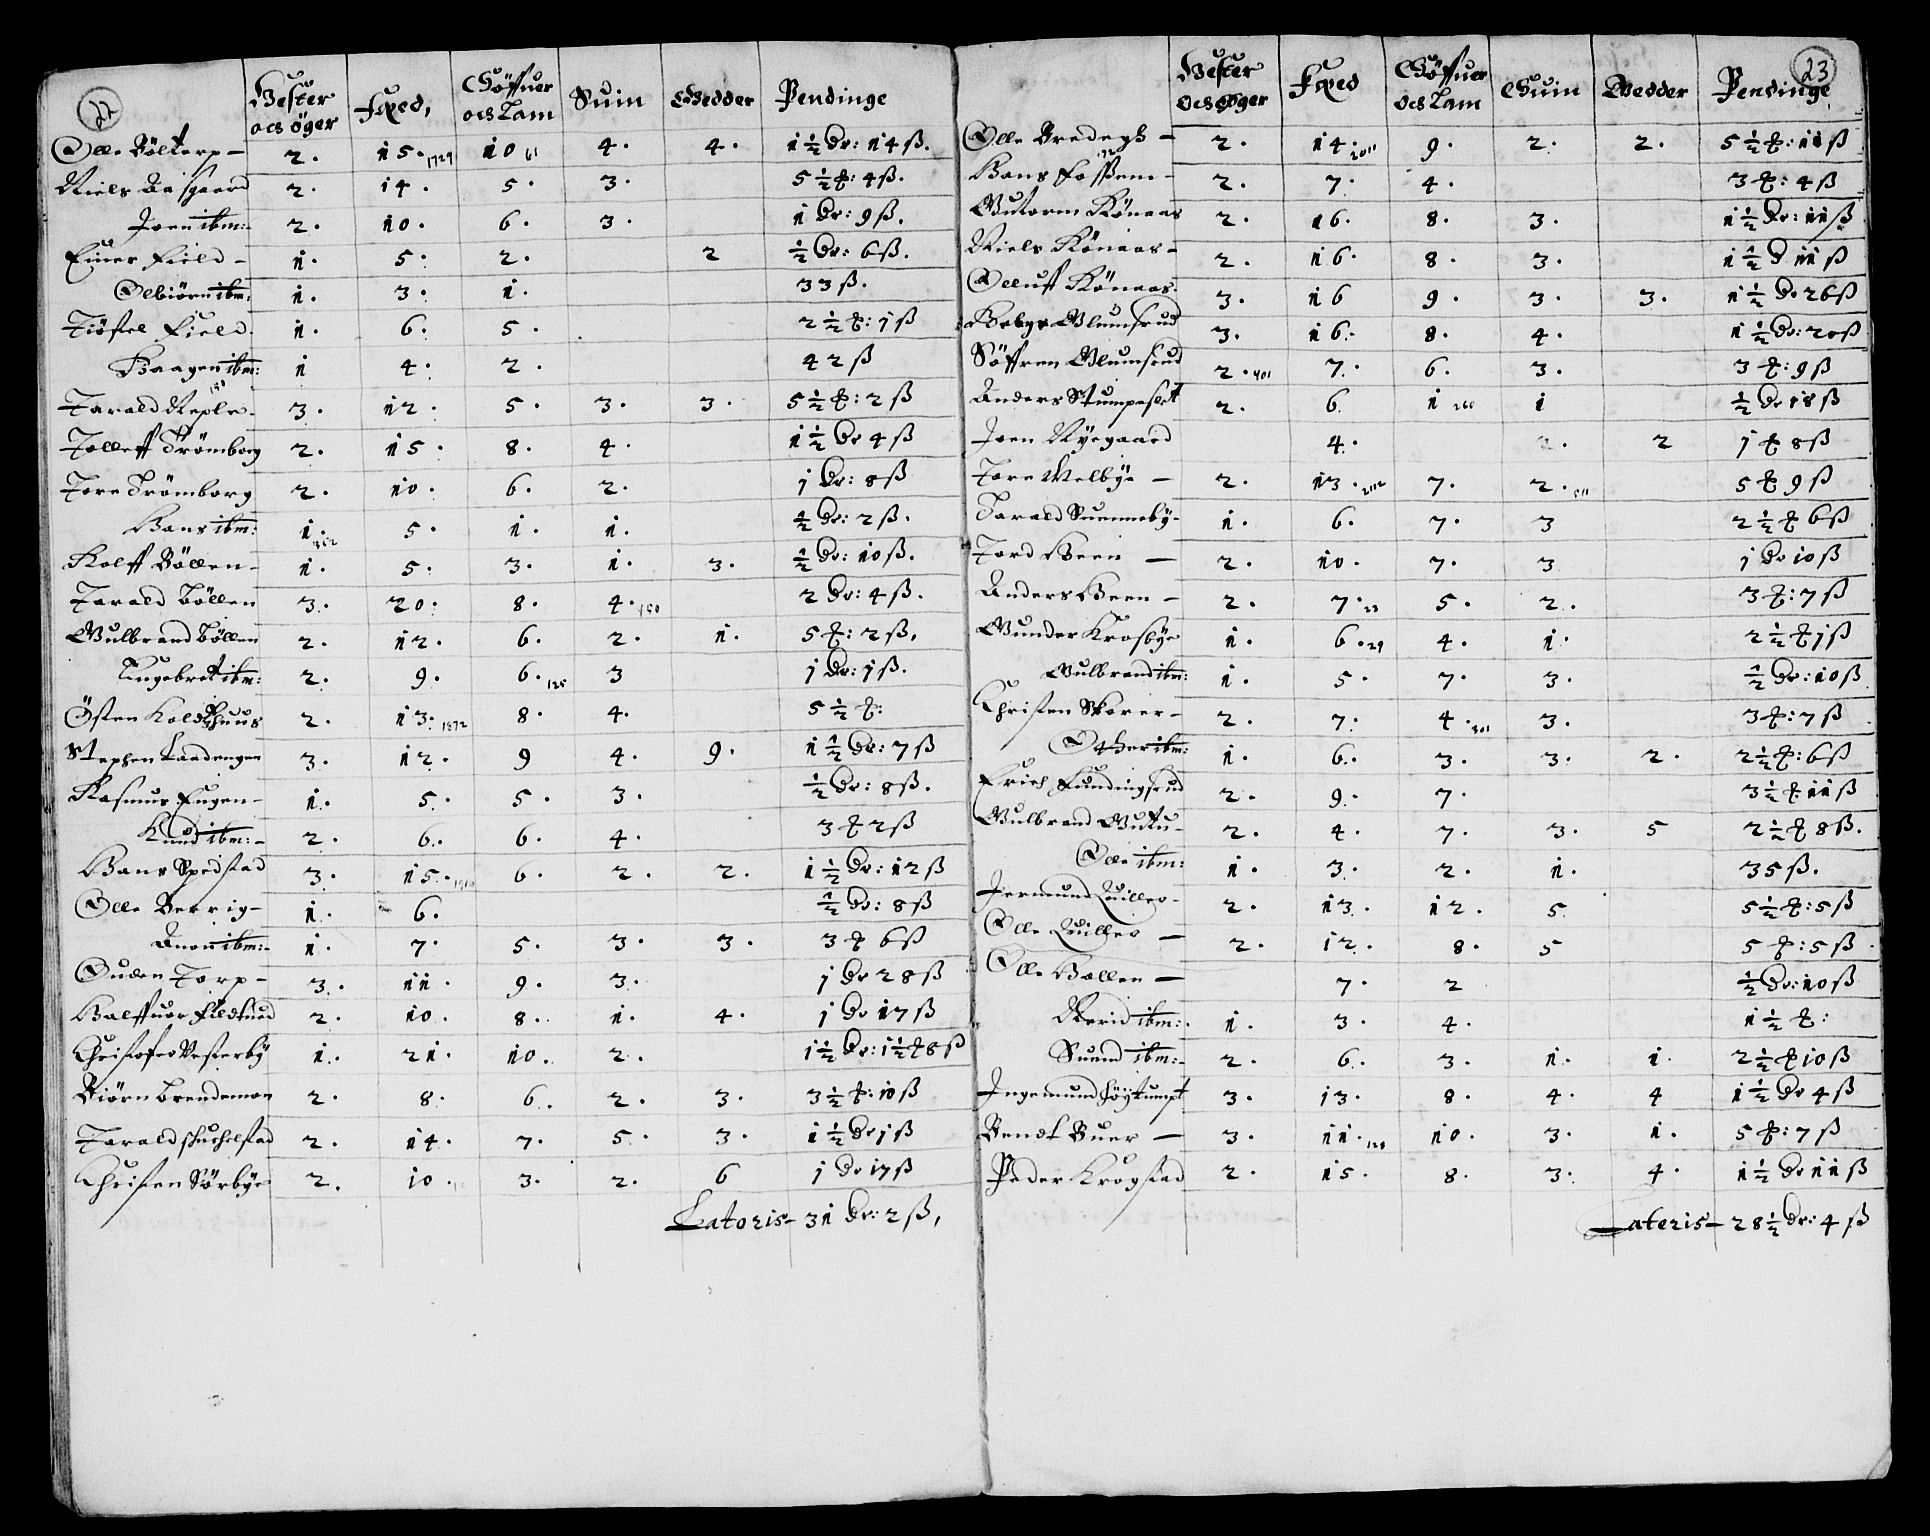 22
Hester och öger | Fxed, | Söffuer och Lam | Suin | Giedder | Pendinge
Olle Böltorp – 2. 15. 1729 10 61 4. 4. 1½ Dr: 14 ß.
Niels Aasgaard 2. 14. 5. 3. 5½ ₰: 4 ß.
Joen ibm:- 2. 10. 6. 3. 1 Dr: 9 ß.
Einer Field – 1. 5. 2. 2 ½ Dr: 6 ß.
Olbiörn ibm: 1. 3. 1. 33 ß.
Tiöstel Field. 1. 6. 5. 2½ ₰: 1 ß
Haagen ibm: 1 4. 2. 42 ß
Tarald Reple. 3. 12. 5. 3. 3. 5½ ₰: 2 ß
Tolleff Trömborg 2. 15. 8. 4. 1½ Dr 4 ß
Tore Trömborg 2. 10. 6. 2. 1 Dr: 8 ß
Hans ibm: 1. 5. 1. 1. ½ Dr: 2 ß.
Rolff Böllen – 1. 5. 3. 1. 3. ½ Dr: 10 ß.
Tarald Böllen 3. 20. 8. 4. 2 Dr: 4 ß.
Gulbrand Böllen 2. 12. 6. 2. 1. 5 ₰: 2 ß.
Engebret ibm: 2. 9. 6. 125 3 1 Dr: 1 ß.
Östen Koldzhuus 2. 13. 1872 8. 4. 5½ ₰:
Stephen Laadengen 3. 12. 9 4. 9. 1½ Dr: 7 ß
Rasmus Eugen – 1. 5. 5. 3. ½ Dr: 8 ß.
Knud ibm:- 2. 6. 6. 4. 3 ₰ 2 ß
Hans Spedstad 3. 15. 1910 6. 2. 2. 1½ Dr: 12 ß
Olle Berrig – 1. 6. ½ Dr: 8 ß
Anon ibm:- 1. 7. 5. 3. 3. 3 ₰ 6 ß
Ouden Torp – 3. 11. 9. 3. 1 Dr 28 ß
Halffuor Fildtued 2. 10. 8. 1. 4. 1 Dr 17 ß
Christofer Vesterby 1. 21. 10. 2. 1½ Dr: 1½ ₰ 8 ß
Biörn Brendemoen 2. 8. 6. 2. 3. 3½ ₰: 10 ß
Tarald skuchelstad 2. 14. 7. 5. 3. 1½ Dr 1 ß
Christen Sörbye 2. 10. 3. 2. 6 1 Dr 17 ß
Lateris – 31 Dr: 2 ß,
23
Hester och öger | Fxed | Söffuer och Lam | Suin | Giedder | Pendinge
Olle Bredegh – 2. 14. 2011 9. 2. 2. 5½ ₰: 11 ß
Hans Fossem – 2. 7. 4. 3 ₰: 4 ß
Gutorm Könaas 2. 16. 8. 3. 1½ Dr: 11 ß
Niels Könaas – 2. 16. 8. 3. 1½ D 11 ß
Olluff Könaas. 3. 16 9. 3. 3. 1½ Dr 26 ß
Helge Glumserud 3. 16. 8. 4. 1½ Dr: 20 ß
Söffren Glumserud 2. 401 7. 6. 3. 3 ₰: 9 ß
Anders Stumpeslet 2. 6. 1 260 1 ½ Dr 18 ß
Joen Nyegaard 4. 2. 2 1 ₰ 8 ß
Tore Melbye – 2. 13. 2112 7. 2. 511 5 ₰ 9 ß
Tarald Suenneby – 1. 6. 7. 3 2½ ₰ 6 ß
Tord Heen – 2. 10. 7. 3 1 Dr 10 ß
Anders Heen – 2. 7. 23 5. 2. 3 ₰: 7 ß
Gunder Krosbye 1. 6. 29 4. 1. 2½ ₰ 1 ß
Gulbrand ibm: 1. 5. 7. 3. ½ Dr: 10 ß
Christen Skorer – 2. 7. 4. 301 3. 3 ₰: 7 ß
Other ibm: 1. 6. 3. 3. 2. 2½ ₰: 6 ß
Erich Fundingsrud 2. 9. 7. 3½ ₰ 11 ß
Gulbrand Gutu – 2. 4. 7. 3. 5 2½ ₰ 8 ß.
Olle ibm: 1. 3. 2. 1. 35 ß.
Jermund Quiller – 2. 13. 12. 5. 5½ ₰: 5 ß
Olle Quiller – 2. 12. 8. 5 5 ₰: 5 ß
Olle Hollen – 7. 2 ½ Dr: 10 ß
ibm:. 1. 3. 4. 1½ ₰:
Suend ibm:- 2. 6. 3. 1. 1. 2½ ₰ 10 ß
Ingemund Högtumpt 3. 13. 8. 4. 4 1½ Dr 4 ß
Bendt Buer – 3. 11. 128 10. 3. 1. 5 ₰: 7 ß
Peder Krogstad 2. 15. 8. 3. 4. 1½ Dr 11 ß
Lateris – 28½ Dr: 4 ß